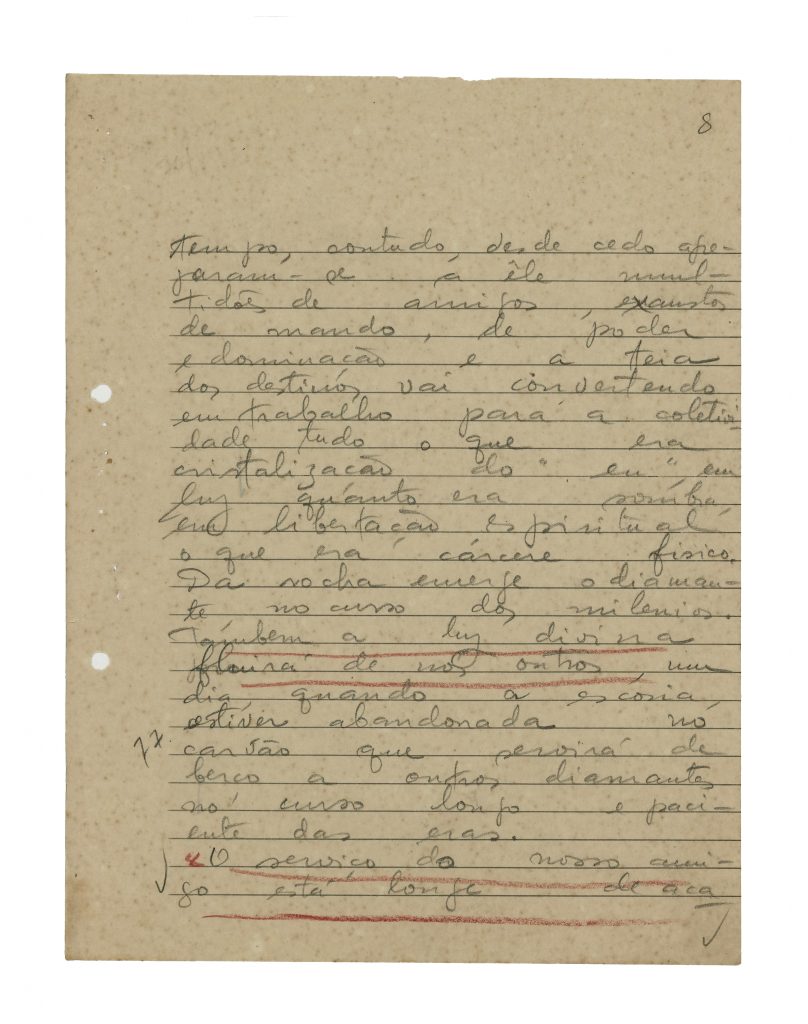 8
tempo, contudo, desde cedo ape-
garam-se a êle mul-
tidões de amigos, exaustos
de mando, de poder
e dominação e a teia
dos destinos vai convertendo
em trabalho para a coletivi-
dade tudo o que era
cristalização do "eu", em
luz quanto era sombra,
em libertação espiritual
o que era cárcere fisico.
Da rocha emerge o diaman-
te no curso dos milenios.
Tambem a luz divina
fluirá de nós outros, um
dia, quando a escoria,
estiver abandonada no
carvão que servirá de
berço a outros diamantes
no curso longo e paci-
ente das eras.
"O serviço do nosso ami-
go está longe de aca